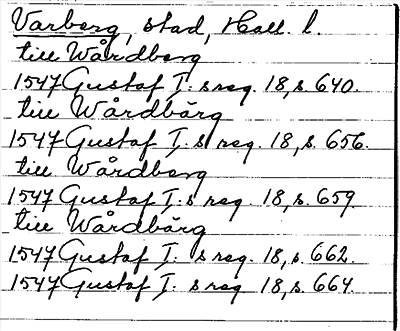 Varberg, stad, Hall. l.
till Wårdberg
1547 Gustaf I:s reg. 18, s. 640.
till Wårdbärg
1547 Gustaf I:s reg. 18, s. 656.
till Wårdberg
1547 Gustaf I:s reg. 18, s. 659
till Wårdbärg
1547 Gustaf I:s reg. 18, s. 662.
1547 Gustaf I:s reg. 18, s. 664.